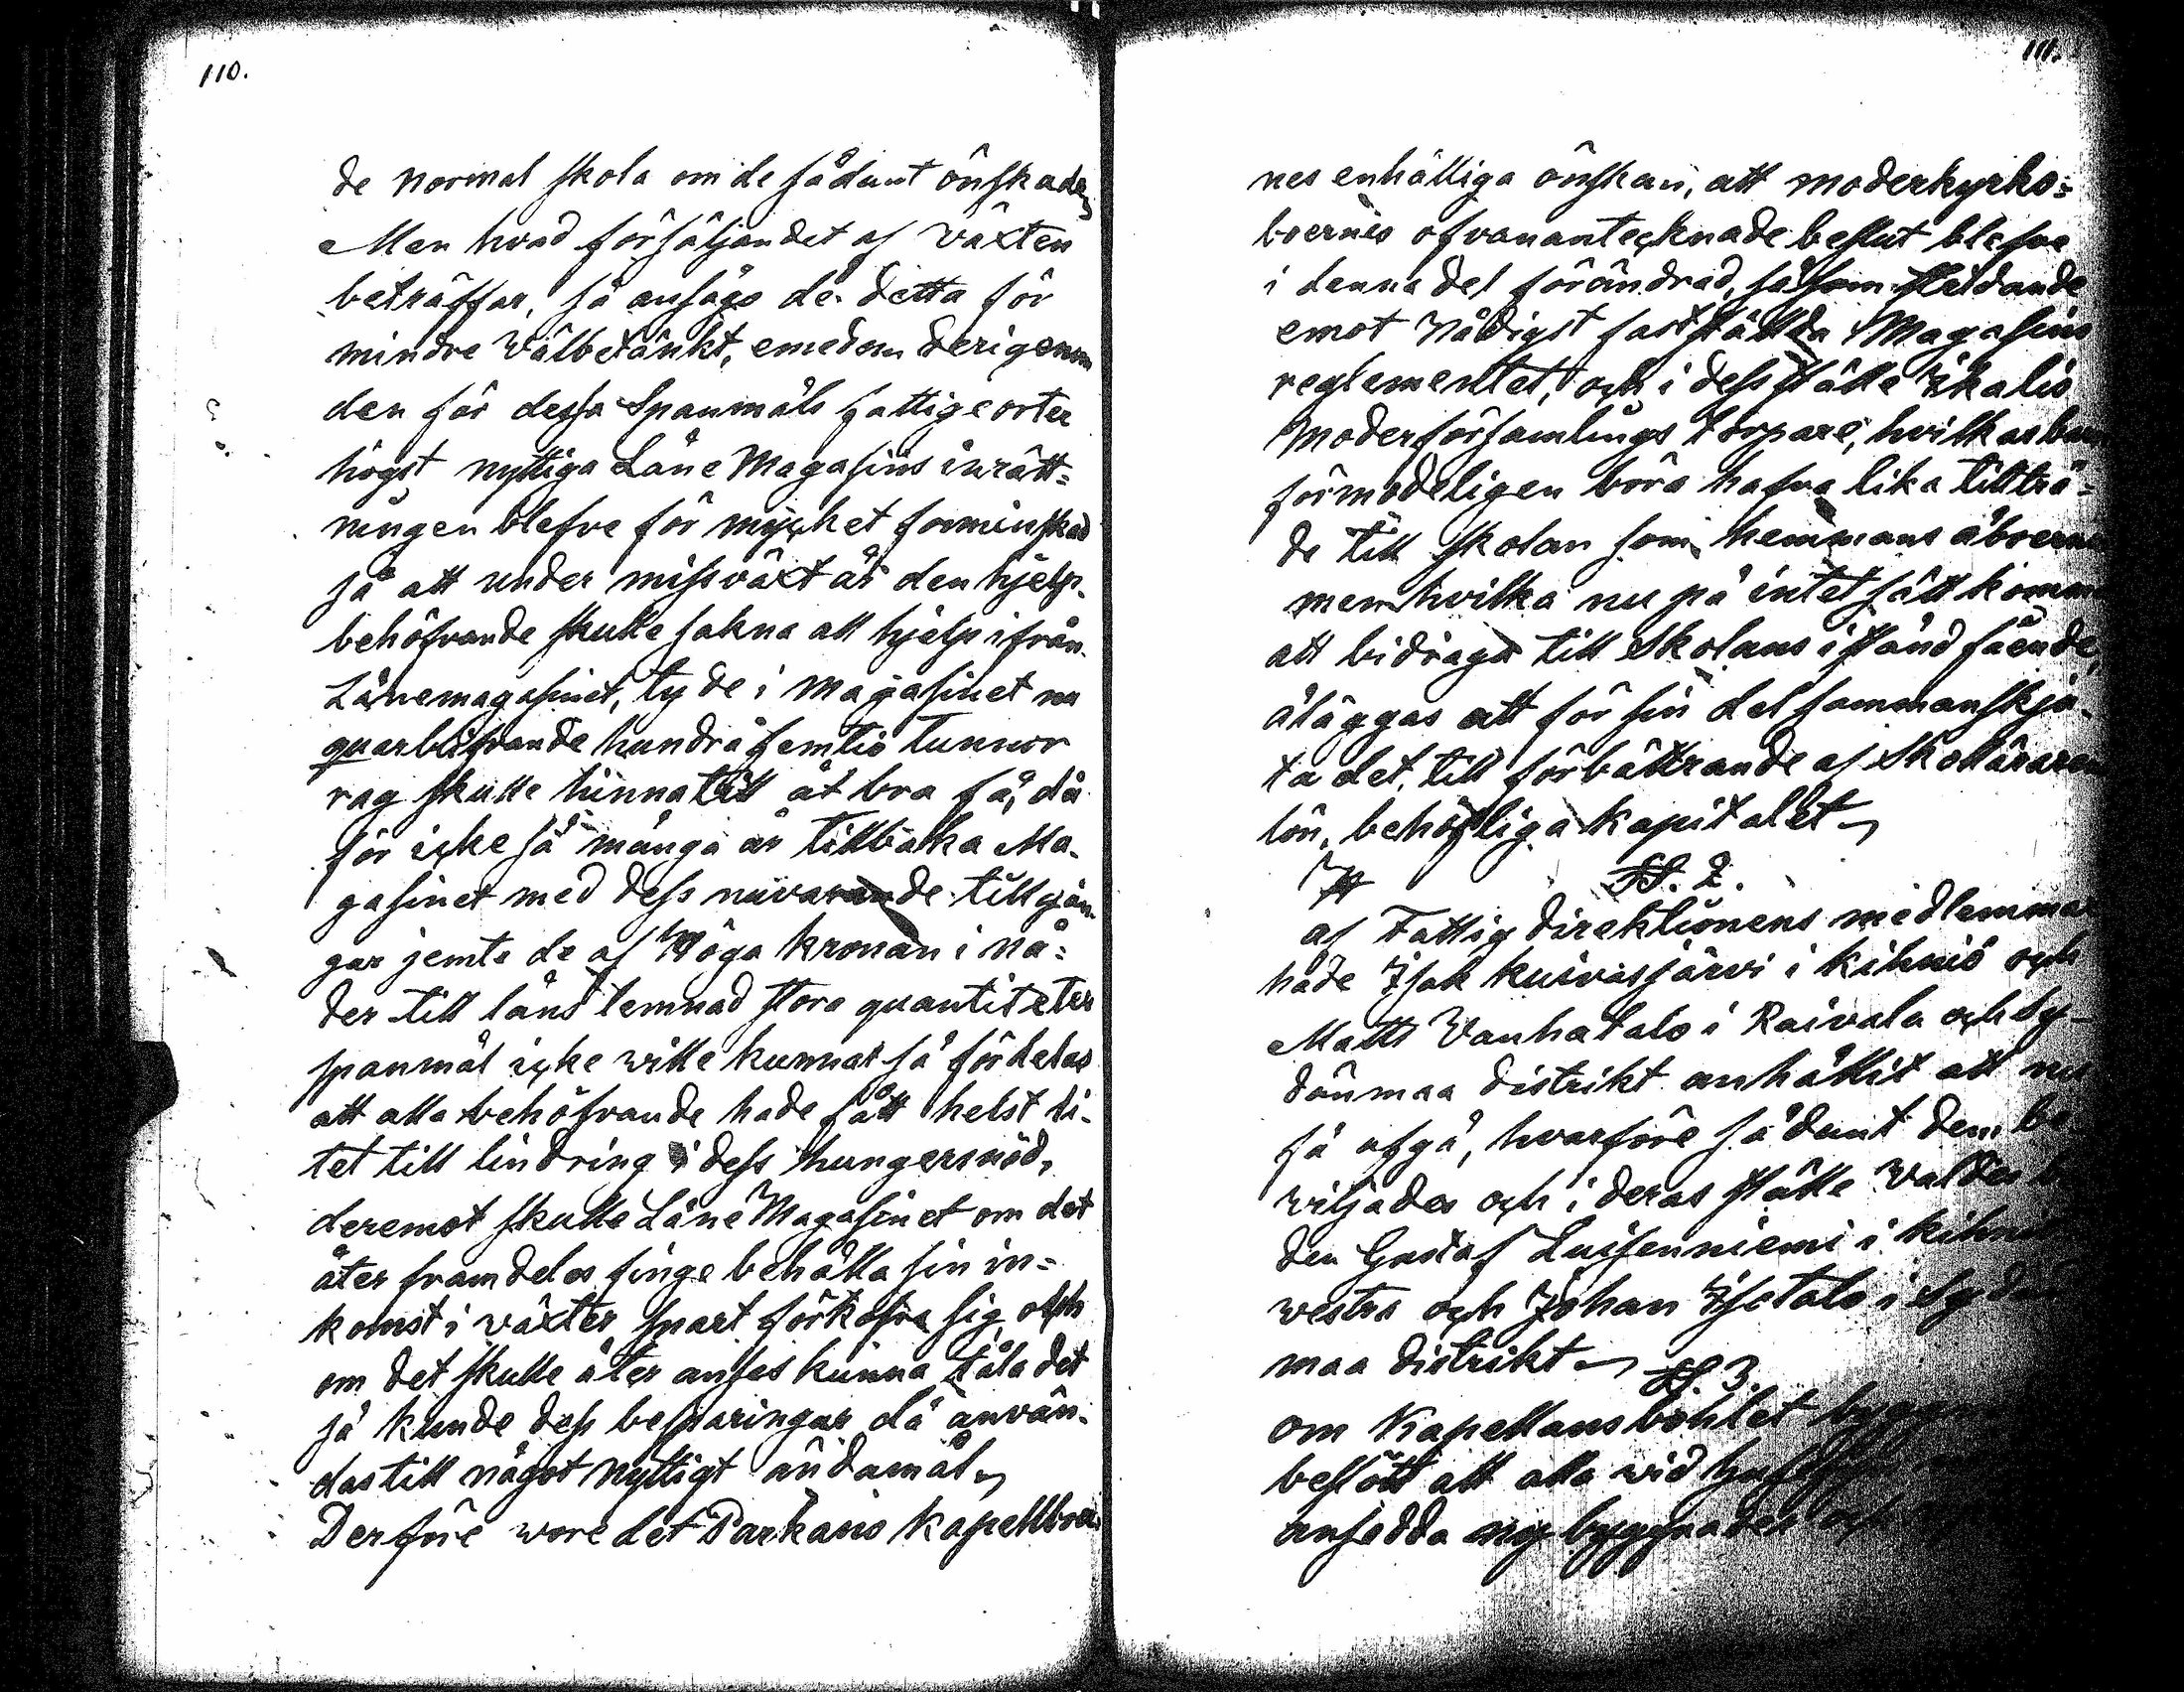 110.
de normal skola om de sådant önskade
Men hvad försäljandet af växten
beträffar, så ansågs de detta för
mindre välbetänkt, emedan derigenom
den för dessa Spanmåls fattige orter
högst nyttiga Låne Magasins inrätt=
ningen blefve för mycket forminskad
så att under missväxt år den hjelp-
behöfvande skulle sakna all hjelp ifrån
Lånemagasinet, ty de i magasinet nu
quarblifvande hundra femtio tunnor
råg skulle hinna till åt bra få, då
för icke så många år tillbaka Ma-
gasinet med dess nuvarande tillgån-
gar jemte de af Höga kronan i nå=
der till låns lemnad stora quantiteter
spanmål icke wille kunnat så fördelas
att alla behöfvande hade fått helst li-
tet till lindring i dess hungersnöd,
deremot skulle Låne Magasinet om det
åter framdeles finge behålla sin in=
komst i växter snart förkofra sig och
om det skulle åter anses kunna tåla det
så kunde dess besparingar då använ-
das till något nyttigt ändamål
Derföre wore det Parkano kapellboer-
111.
nes enhälliga önskan, att moderkyrko=
boernes ofvanantecknade beslut blefve
i denna del förändrad, såsom stridande
emot Nådigst fastställda Magasins
reglementet, och i dess ställe Ikalis
Moderförsamlings torpare, hvilkas barn
förmodeligen böra hafva lika tillträ=
de till skolan som hemmans åboerne
men hvilka nu på intet sätt komma
att bidraga till Skolans istånd fående,
åläggas att för sin del sammanskju-
ta det till förbättrande af Skollärarens
lön, behöfliga kapitalet
§. 2.
af Fattig direktionens medlemmar
hade Isak kuivasjärvi i kihniö och
Matts Vanhatalo i Raivala och Sy-
dänmaa distrikt anhållit att nu
få afgå, hvarföre sådant dem be-
wiljades och i deras ställe valdes
den Gustaf Luisenniemi i kihniö
westra och Johan Isotalo i Sydän
maa distrikt
§. 3.
om Kapellansbohlet
beslött att alla wid
ansedda ny byggnader och